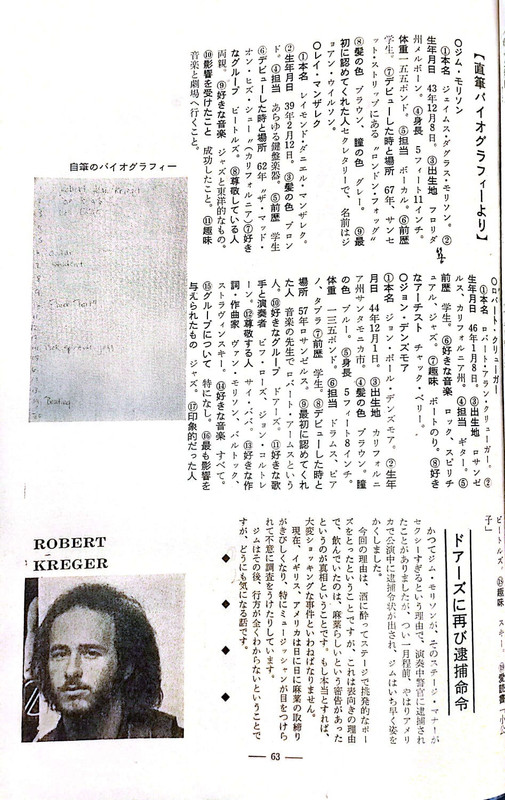 【直筆バイオグラフィーより】
○ジム・モリソン
①本名 ジェイムス・ダグラス・モリソン。②
生年月日 43年12月8日。③出生地 フロリダ
州メルボーン。④身長 5フィート11インチ。
体重一五五ポンド。⑤担当 ボーカル。⑥前歴
学生。⑦デビューした時と場所 67年、サンセ
ット・ストリップにある"ロンドン・フォッグ"
⑧髪の色 ブラウン、瞳の色 グレー。⑨最
初に認めてくれた人 セクレタリーで、名前はジ
ョアン・ウイルソン。
○レイ・マンザレク
①本名 レイモンド・ダニエル・マンザレク。
②生年月日 39年2月12日。③髪の色 ブロン
ド。④担当 あらゆる鍵盤楽器。⑤前歴 学生
⑥デビューした時と場所 62年 "ザ・マッド・
オン・ヒズ・シュー"(カリフォルニア)⑦好き
なグループ ビートルズ。⑧尊敬している人
両親。⑨好きな音楽 ジャズと東洋的なもの。
⑩影響を受けたこと 成功したこと。⑪趣味
音楽と劇場へ行くこと。
自筆のバイオグラフィー
○ロバート・クリューガー
①本名 ロバート・アラン・クリューガー。②
生年月日 46年1月8日。③出生地 ロサンゼ
ルス、カリフォルニア州。④担当 ギター。⑤
前歴 学生。⑥好きな音楽 ロック、スピリチ
ュアル、ジャズ。⑦趣味 ボートのり。⑧好き
なアーチスト チャック・ベリー。
○ジョン・デンズモア
①本名 ジョン・ポール・デンズモア。②生年
月日 44年12月1日。③出生地 カリフォルニ
ア州サンタモニカ市。④髪の色 ブラウン、瞳
の色 ブルー。⑤身長 5フィート8インチ。
体重 一三五ポンド。⑥担当 ドラムス、ピア
ノ、タブラ ⑦前歴 学生。⑧デビューした時と
場所 57年ロサンゼルス。⑨最初に認めてくれ
た人 音楽の先生でロバート・アームスという
人。⑩好きなグループ ドアーズ。⑪好きな歌
手と演奏者 ビフ・ローズ、ジョン・コルトレ
ーン。⑫尊敬する人 サイ・ババ。⑬好きな作
詞・作曲家 ヴァン・モリソン、バルトック、
ストラヴィンスキー。⑭好きな音楽 すべて。
⑮グループについて 特になし。⑯最も影響を
与えられたもの ジャズ。⑰印象的だった人
ビートルズ。⑱趣味 スキー。⑲愛読書 "小公
子"
ドアーズに再び逮捕命令
かつてジム・モリソンが、ニのステージ・マナーが
セクシーすぎるという理由で、演奏中警官に逮捕され
たことがありましたが、つい一月程前、やはりアメリ
カで公演中に逮捕令状が出され、ジムはいち早く姿を
かくしました。
今回の理由は、酒に酔ってステージで挑発的なポー
ズをとったということですが、これは表向きの理由
で、飲んでいたのは、麻薬らしいという密告があった
というのが真相ということです。もし本当とすれば、
大変ショッキングな事件といわねばなりません。
現在、イギリス、アメリカは日に日に麻薬の取締り
がきびしくなり、特にミュージッシャンが目をつけら
れて不意に調査をうけたりしています。
ジムはその後、行方が全くわからないということで
すが、どうにも気になる話です。
◆ ◆ ◆ ◆
ROBERT
KREGER
— 63 —